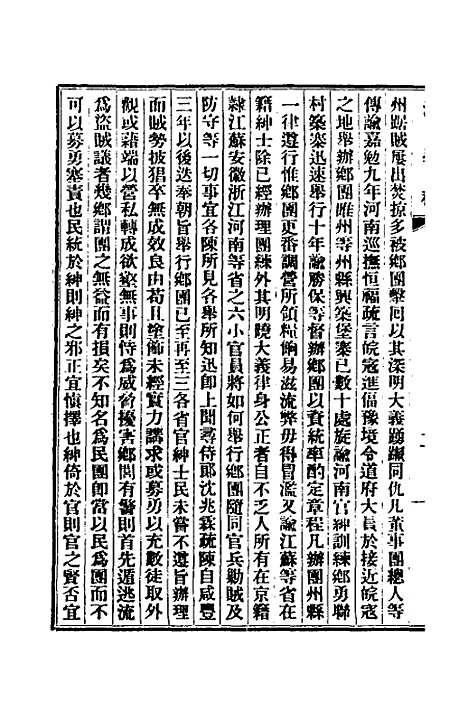 州踞賊屢出焚掠多被鄉團擊回以其深明大義踴躍同仇凡董事團總人等
傳諭嘉勉九年河南巡撫恒福疏言皖寇進偪豫境令道府大員於接近皖寇
之地舉辦鄉團睢州等州縣興築堡寨已數十處旋諭河南官紳訓練鄉勇聯
村築寨迅速舉行十年諭勝保等督辦鄉團以資統率酌定章程凡辦團州縣
一律遵行惟鄉團更番調營所領糧餉易滋流弊毋得冒濫又諭江蘇等省在
籍紳士除已經辦理團練外其明曉大義律身公正者自不乏人所有在京籍
隸江蘇安徽浙江河南等省之六小官員將如何舉行鄉團隨同官兵勦賊及
防守等一切事宜各陳所見各舉所知迅卽上聞尋侍郎沈兆霖疏陳自咸豐
三年以後迭奉朝旨舉行鄉團已至再至三各省官紳士民未嘗不遵旨辦理
而賊勢披猖卒無成效良由苟且塗飾未經實力講求或募勇以充數徒取外
觀或藉端以營私轉成欲壑無事則恃為威脅擾害鄉閭有警則首先遁逃流
為盜賊議者幾鄉謂團之無益而有損矣不知名為民團卽當以民為團而不
可以募勇塞責也民統於紳則紳之邪正宜愼擇也紳倚於官則官之賢否宜